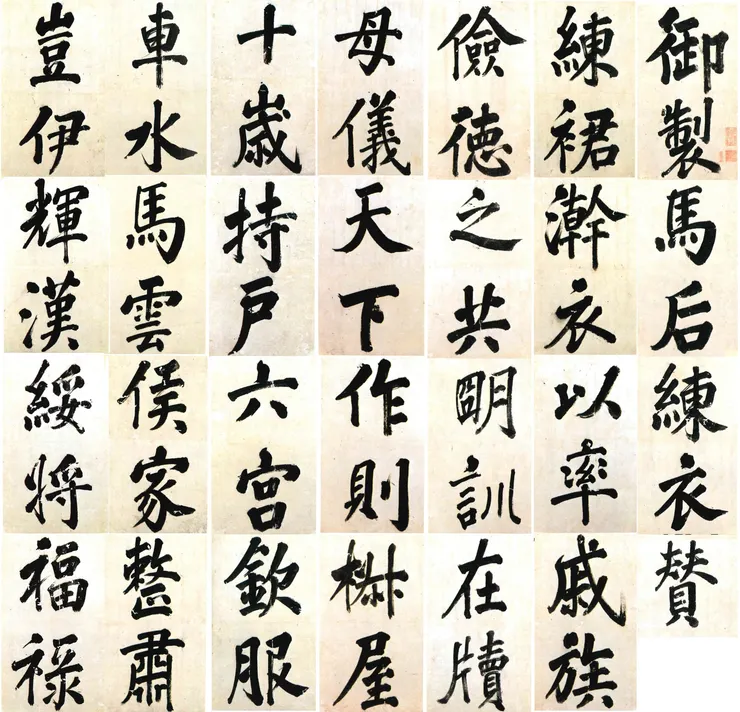 御製馬后練衣賛
練裙澣衣以率戚族
儉徳之共明訓在牘
母儀天下作則椒屋
十歳持戸六宮欽服
車水馬雲侯家整肅
豈伊輝漢綏将福祿